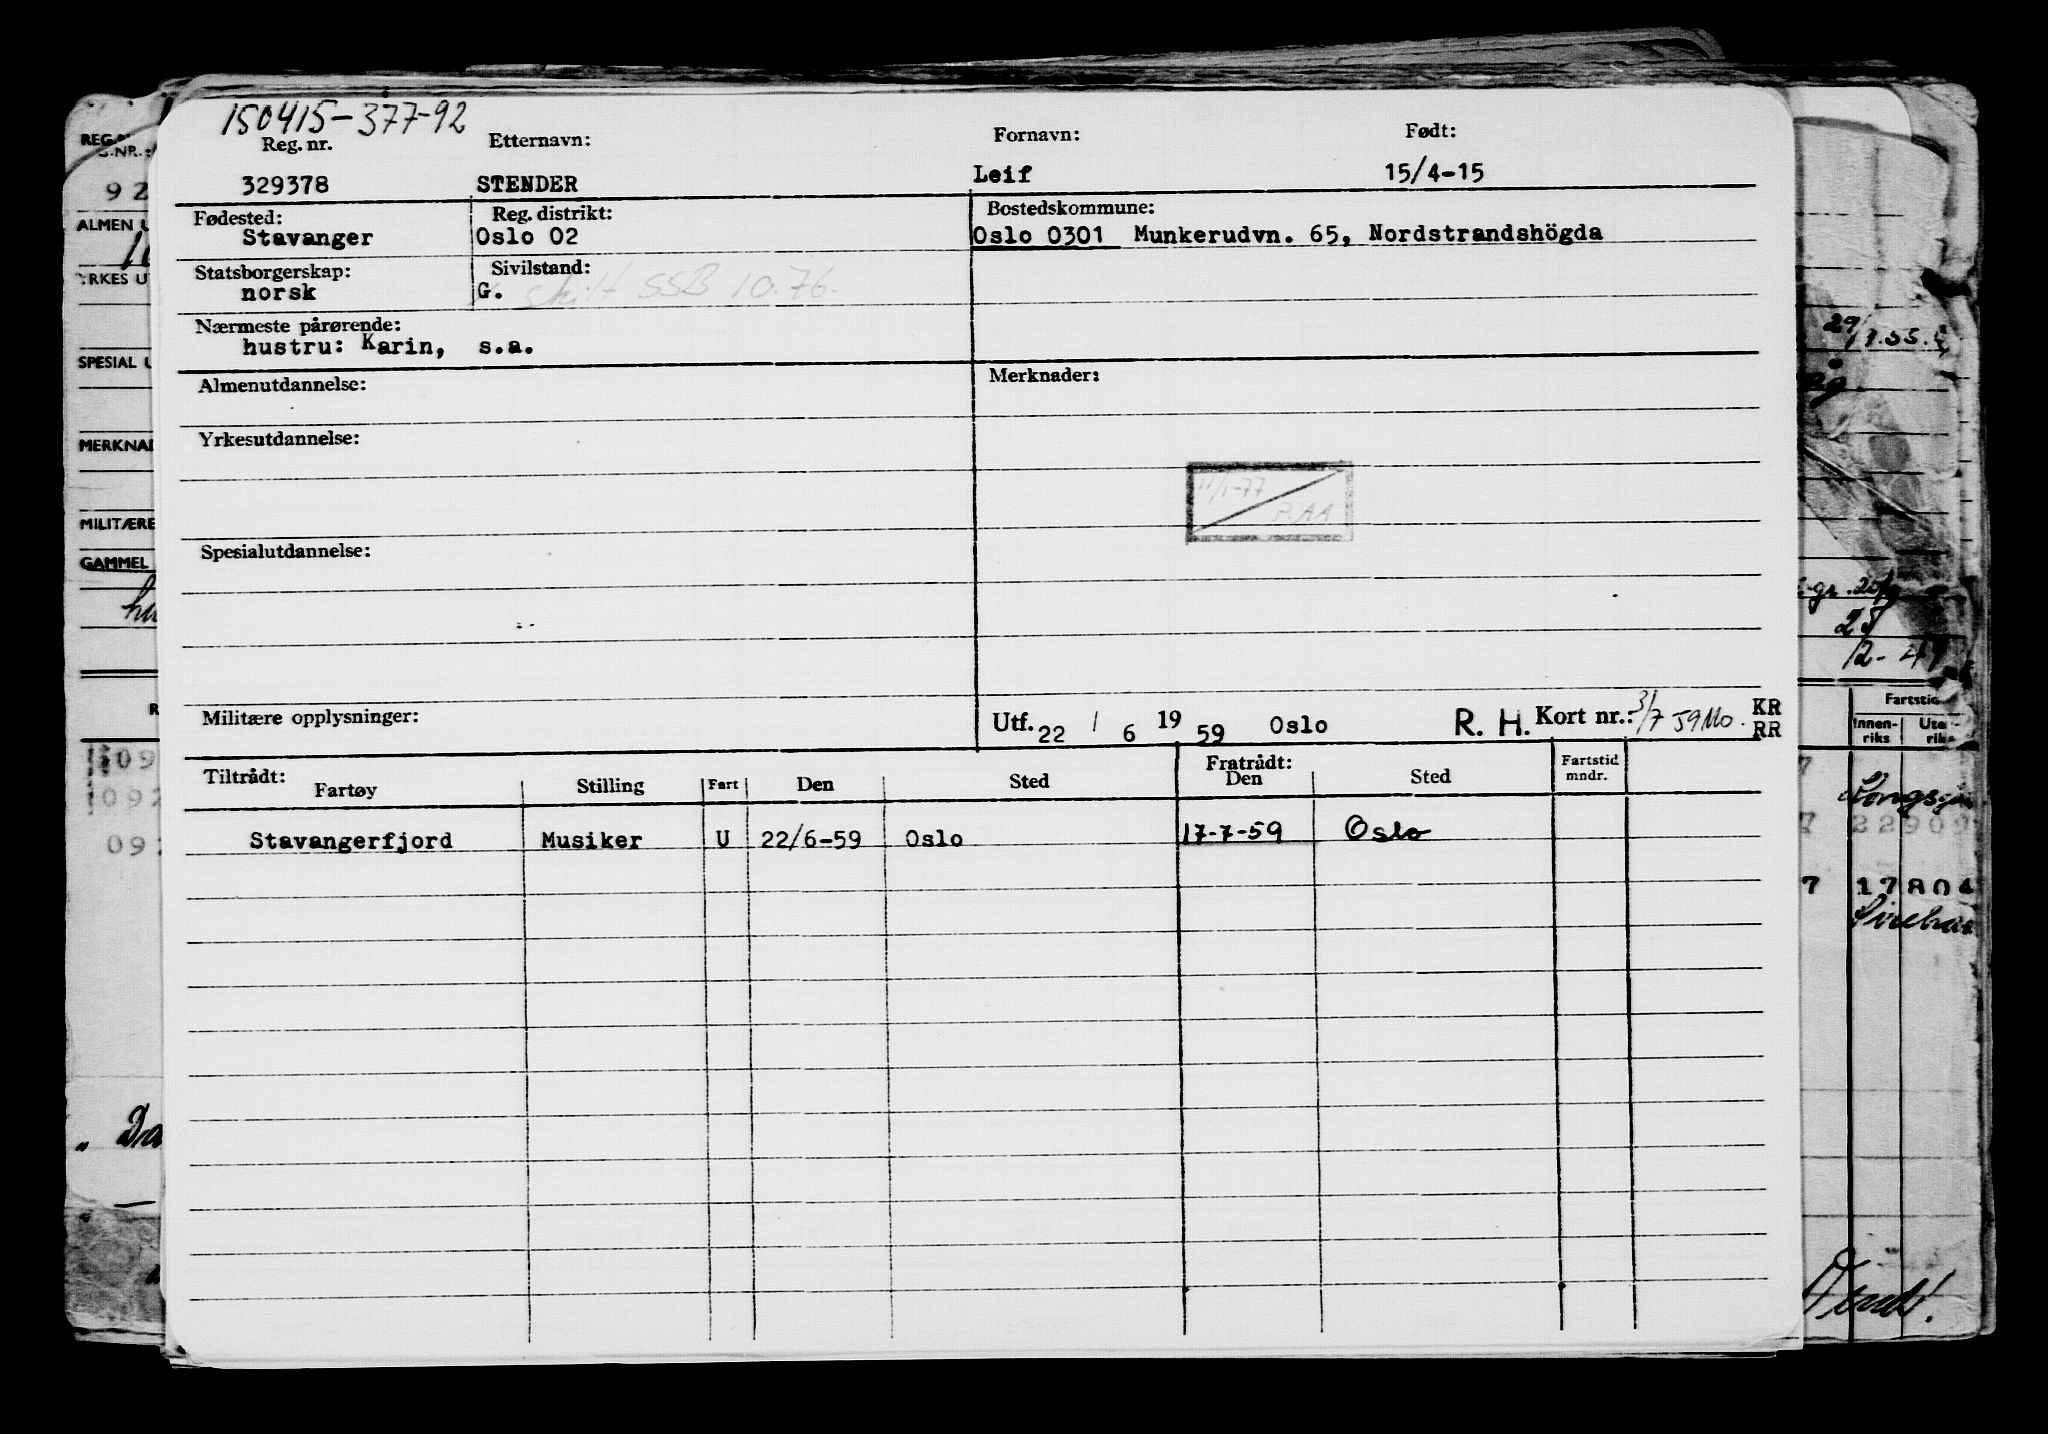 150415-377-92
Reg. nr. Etternavn: Fornavn: Født:
329378 STENDER Leif 15/4-15
Fødested: Reg. distrikt: Bostedskommune:
Stavanger Oslo 02 Oslo 0301 Munkerudvn. 65, Nordstrandshögda
Statsborgerskap: Sivilstand:
norsk G. skilt SSB 10.76.
Nærmeste pårørende:
hustru: Karin, s.a.
Almenutdannelse: Merknader:
Yrkesutdannelse:
11/1-77
P.AA
Spesialutdannelse:
Militære opplysninger: Utf. 22 / 6 19 59 Oslo R. H. Kort nr.: 3/7 59 Mo. KR
RR
Tiltrådt: Fratrådt:
Fartøy Stilling Fart Den Sted Den Sted Fartstid mndr.
Stavangerfjord Musiker U 22/6-59 Oslo 17-7-59 Oslo
92
ALMEN U
RKES U
SPESIAL U
MERKNAD
MILITÆRE
GAMMEL
09
092
092
Da
29/1.55.
25
12-47
Fartstid
Innen-riks Ute-riks
7
7 22909
7 17804